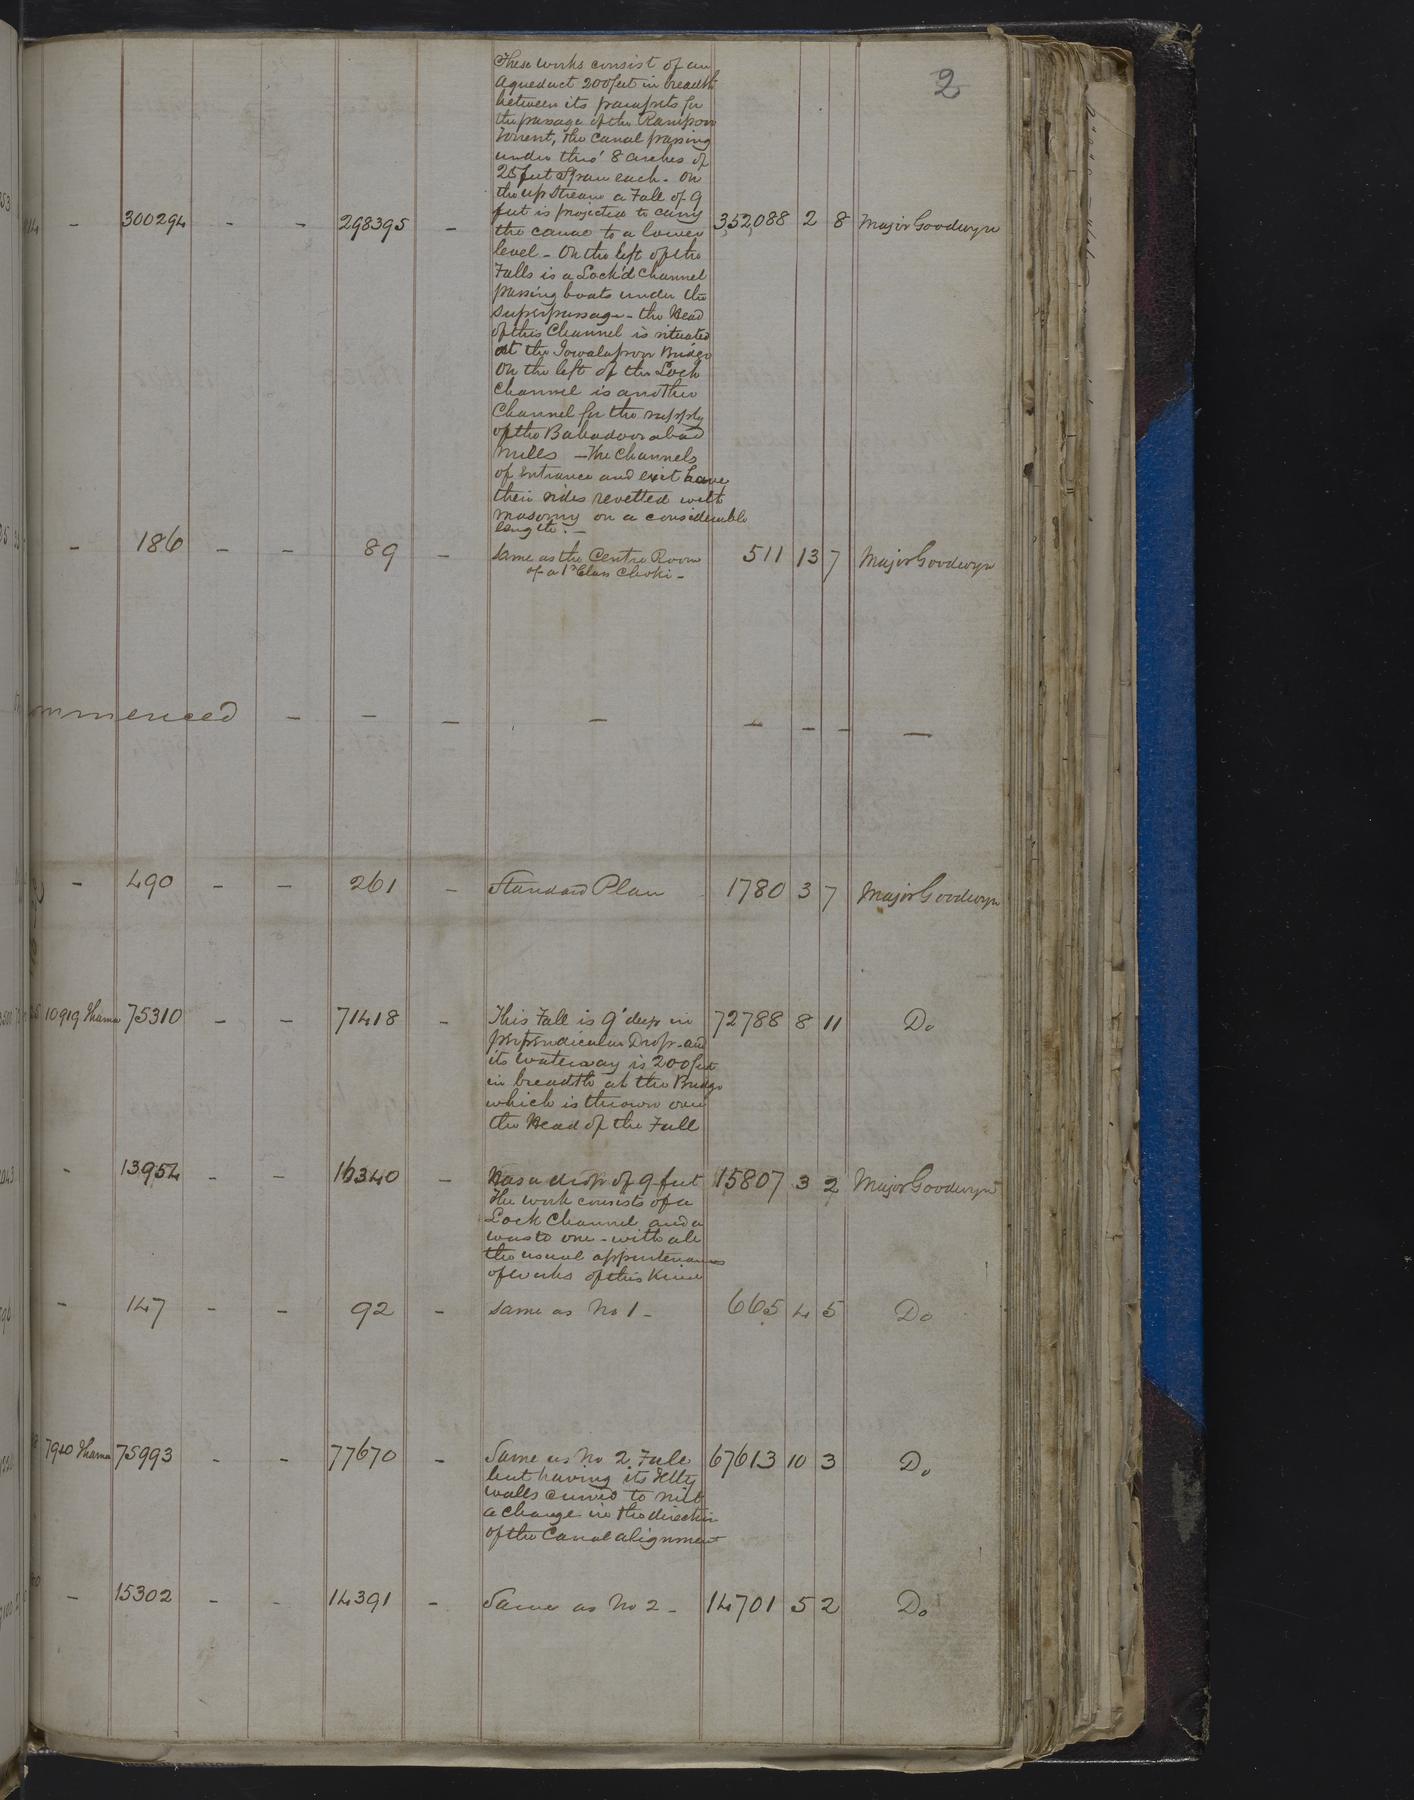 2
These works consist of an
Aqueduct 200 feet in breadth
between its parapets for
the passage of the Rampoor
Torrent, the Canal passing
under thro' 8 arches of
25 feet span each. On
the up stream a Fall of 9
feet is projected to carry
the canal to a lower
level - On the left of the
Falls is a Lock'd Channel
passing boats under the
superpassage - the Head
of this Channel is situated
at the Jowalapoor Bridge
On the left of the Lock
Channel is another
Channel for the supply
of the Bahadoorabad
Mills - The Channels
of Entrance and exit have
their sides revetted with
masonry on a considerable
length. -
- 300294 - - 298395 - 352,088 2 8 Major Goodwyn
- 186 - - 89 - Same as the Centre Room 511 13 7 Major Goodwyn
of a 1st Class Choki -
mmenced - - - - - - - -
- 490 - - 261 - Standard Plan 1780 3 7 Major Goodwyn
10919 75310 - - 71418 - This Fall is 9' deep in 72788 8 11 Do
perpendicular Drop - and
its waterway is 200 feet
in breadth at the Bridge
which is thrown over
the Head of the Fall
- 13954 - - 16340 - Has a drop of 9 feet 15807 3 2 Major Goodwyn
The work consists of a
Lock Channel and a
waste one - with all
the usual appurtenances
of works of this Kind
- 147 - - 92 - Same as No 1 - 665 4 5 Do
7940 75993 - - 77670 - Same as No 2 Fall 67613 10 3 Do
but having its Jetty
walls curved to suit
a change in the direction
of the Canal alignment
- 15302 - - 14391 - Same as No 2 - 14701 5 2 Do